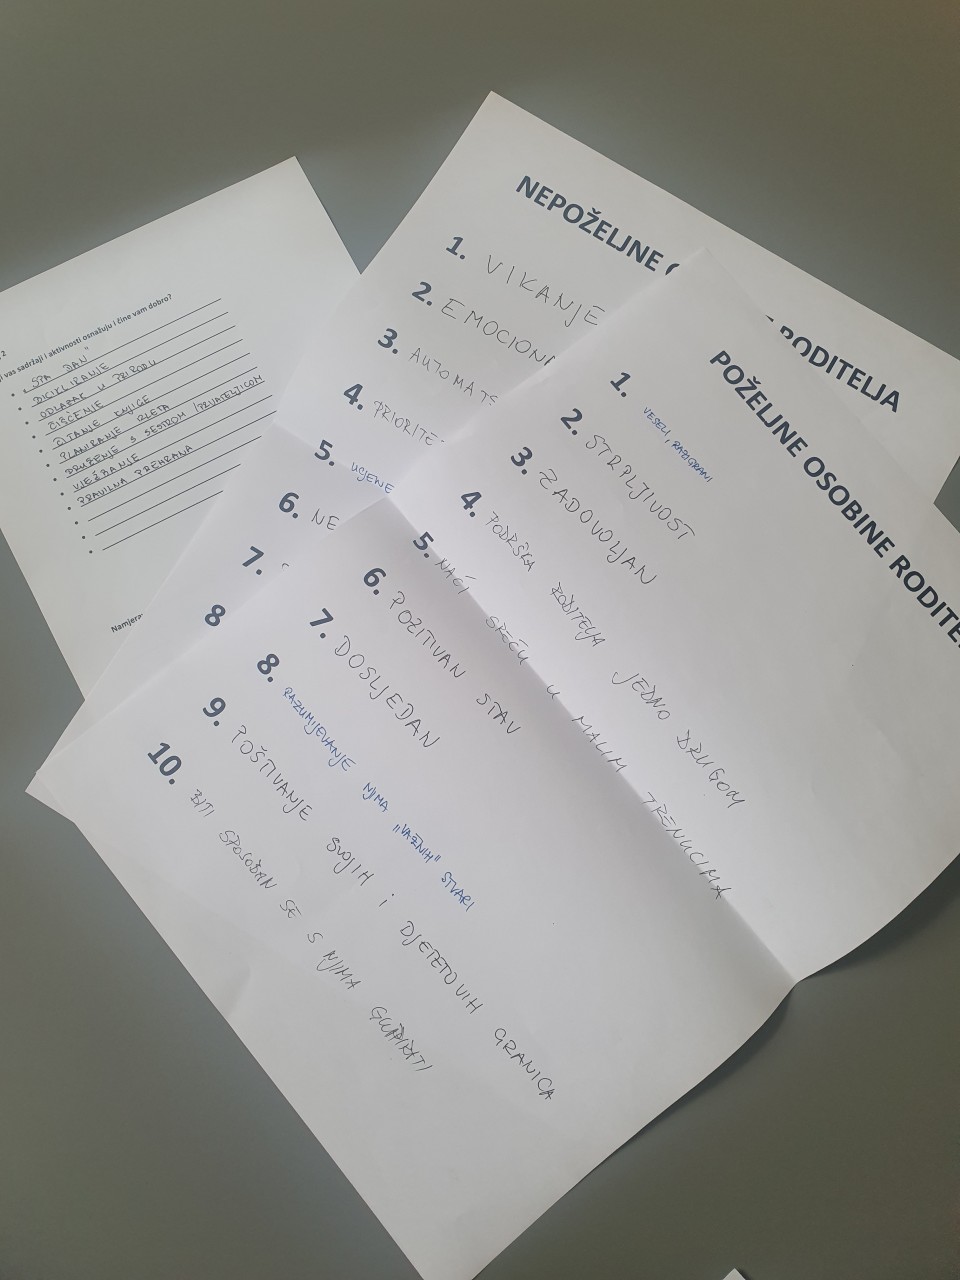 2
vas sadržaji i aktivnosti osnažuju i čine vam dobro?
• "SPA DAN"
• BICIKLIRANJE
• ODLAZAK U PRIRODU
• ČIŠĆENJE
• ČITANJE KNJIGE
• PLANIRANJE IZLETA
• DRUŽENJE S SESTROM/PRIJATELJICOM
• VJEŽBANJE
• PRAVILNA PREHRANA
Namjera
NEPOŽELJNE
RODITELJA
1. VIKANJE
2. EMOCION
3. AUTOMAT
4. PRIORITE
5. UCJENE
6. NE
7.
8
POŽELJNE OSOBINE RODITE
1. VESELI, RAZIGRANI
2. STRPLJIVOST
3. ZADOVOLJAN
4. PODRŠKA RODITELJA JEDNO DRUGOM
5. NAĆI SREĆU U MALIM TRENUCIMA
6. POZITIVAN STAV
7. DOSLJEDAN
8. RAZUMIJEVANJE NJIMA "VAŽNIH" STVARI
9. POŠTIVANJE SVOJIH i DJETETOVIH GRANICA
10. BITI SPOSOBAN SE S NJIMA